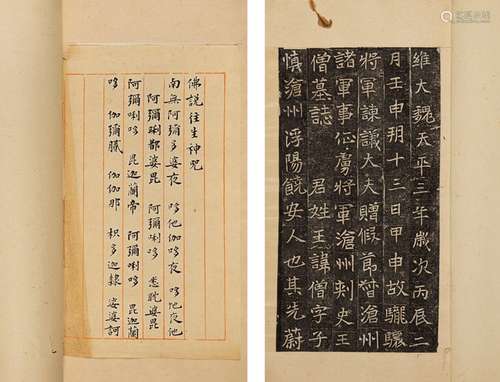 維大魏天平三年歲次丙辰二
月壬申朔十三日甲申故驪驤
將軍諫議大夫贈假節督滄州
諸軍事征虜將軍滄州刺史王
僧墓誌 君姓王諱僧字子
慎滄州浮陽饒安人也其先蔚
佛說往生神咒
南無阿彌多婆夜 哆他伽哆夜 哆地夜他
阿彌唎都婆毘 阿彌唎哆 悉耽婆毘
阿彌唎哆 毘迦蘭帝 阿彌唎哆 毘迦蘭
哆 伽彌膩 伽伽那 枳多迦隸 娑婆訶